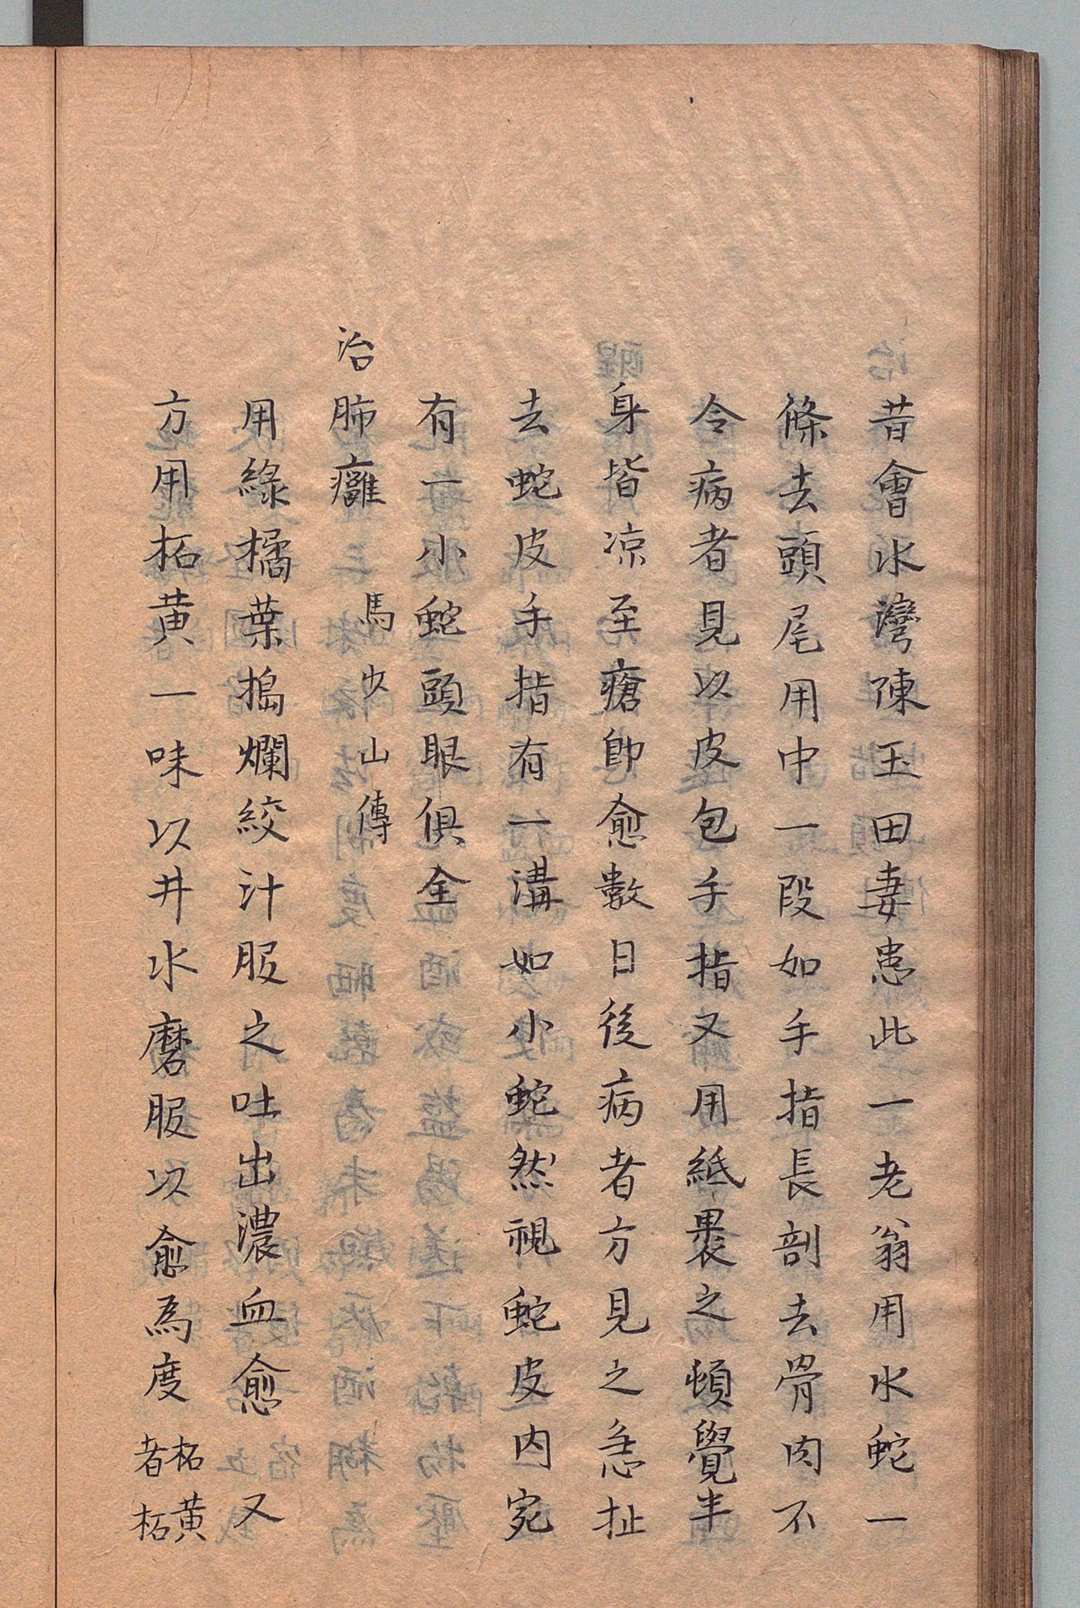 昔會水灣陳玉田妻患此一老翁用水蛇一
條去頭尾用中一段如手指長剖去骨肉不
令病者見以皮包手指又用紙裹之頓覺半
身皆凉至瘡卽愈數日後病者方見之急扯
去蛇皮手指有一溝如小蛇然視蛇皮内宛
有一小蛇頭眼俱全
治肺癰 馬少山傳
用綠橘葉搗爛絞汁服之吐出濃血愈又
方用柘黄一味以井水磨服以愈為度 柘黄
者柘